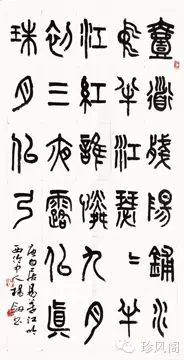 壹道殘陽鋪水
中半江瑟〻半
江紅誰憐九月
初三夜露似真
珠月似弓
唐白居易暮江吟
西泠中人楊
珍风阁